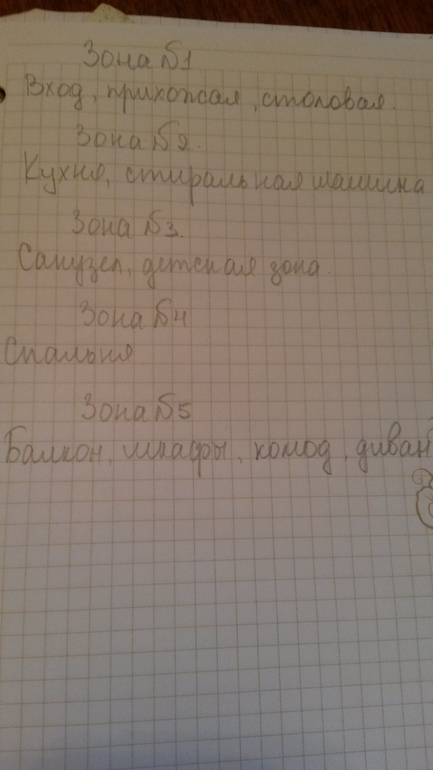 Зона №1
Вход, прихожая, столовая.
Зона №2.
Кухня, стиральная машина
Зона №3.
Санузел, детская зона.
Зона №4
Спальня
Зона №5
Балкон, шкафы, комод, диван